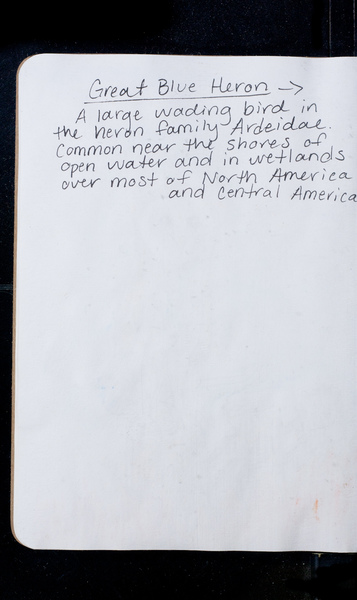 Great Blue Heron →
A large wading bird in
the heron family Ardeidae.
Common near the shores of
open water and in wetlands
over most of North America
and Central America